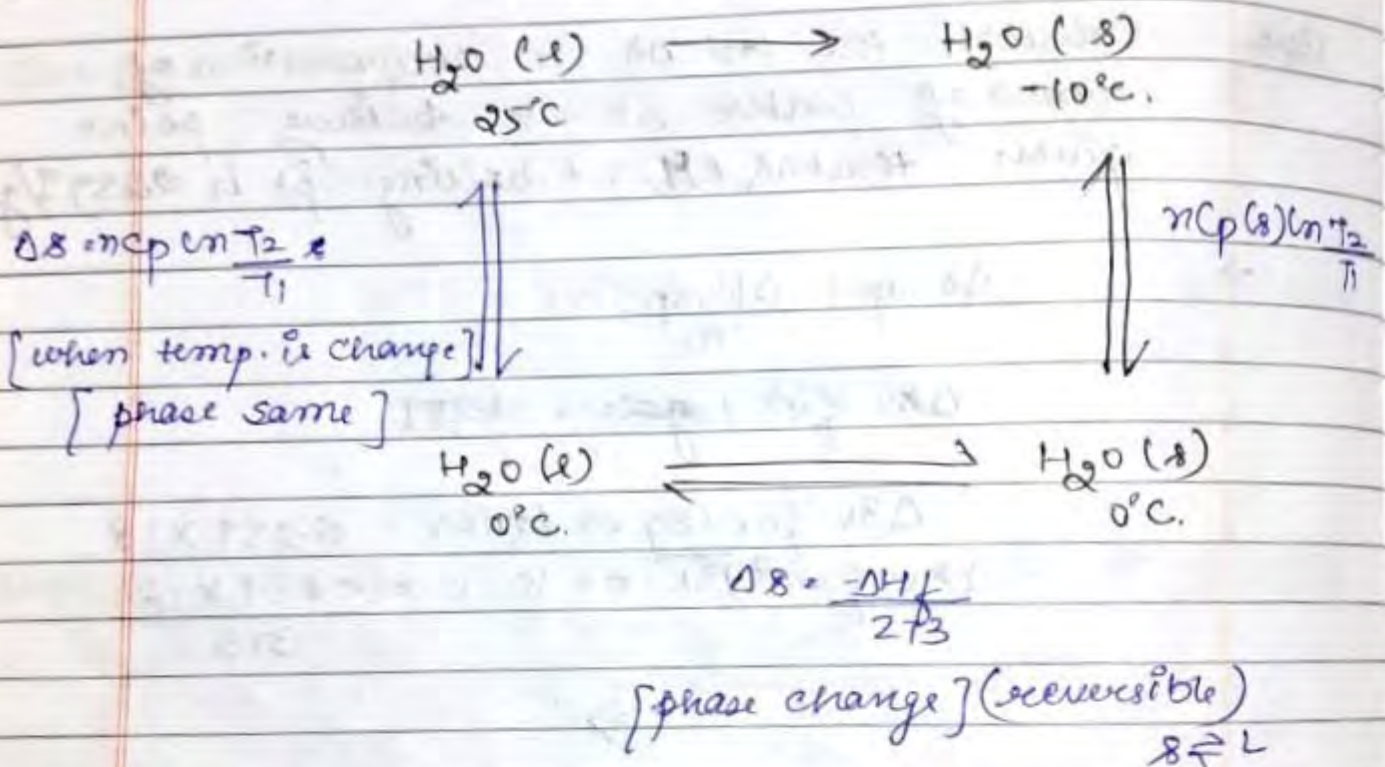 H2O (l) ⟶ H2O (s)
25°C -10°C.
ΔS = nCp ln T2/T1
nCp(s) ln T2/T1
[when temp. is change]
[phase same]
H2O (l) ⇌ H2O (s)
0°C. 0°C.
ΔS = -ΔHf/273
[phase change] (reversible)
s ⇌ L